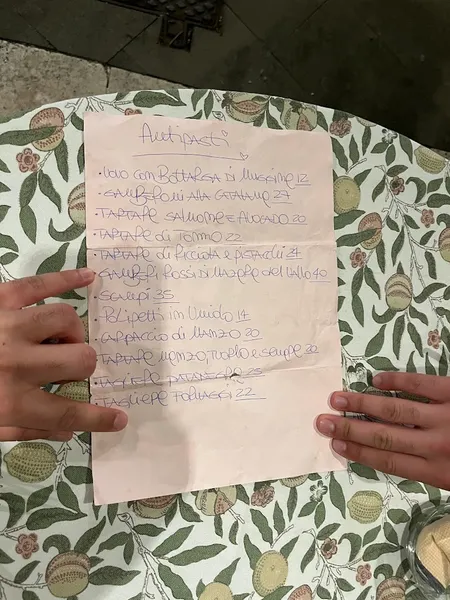 Antipasti
• UOVO CON BOTTARGA DI MUGGINE 12
• GAMBERONI ALLA CATALANA 24
• TARTARE SALMONE E AVOCADO 20
• TARTARE di TONNO 22
• TARTARE di RICCIOLA E PISTACCHI 24
• GAMBERI ROSSI DI MAZARA del VALLO 40
• SCAMPI 35
• POLIPETTI in UMIDO 14
• CARPACCIO di MANZO 20
• TARTARE MANZO, TUORLO E SENAPE 20
• TAGLIERE PATANEGRA 25
• TAGLIERE FORMAGGI 22